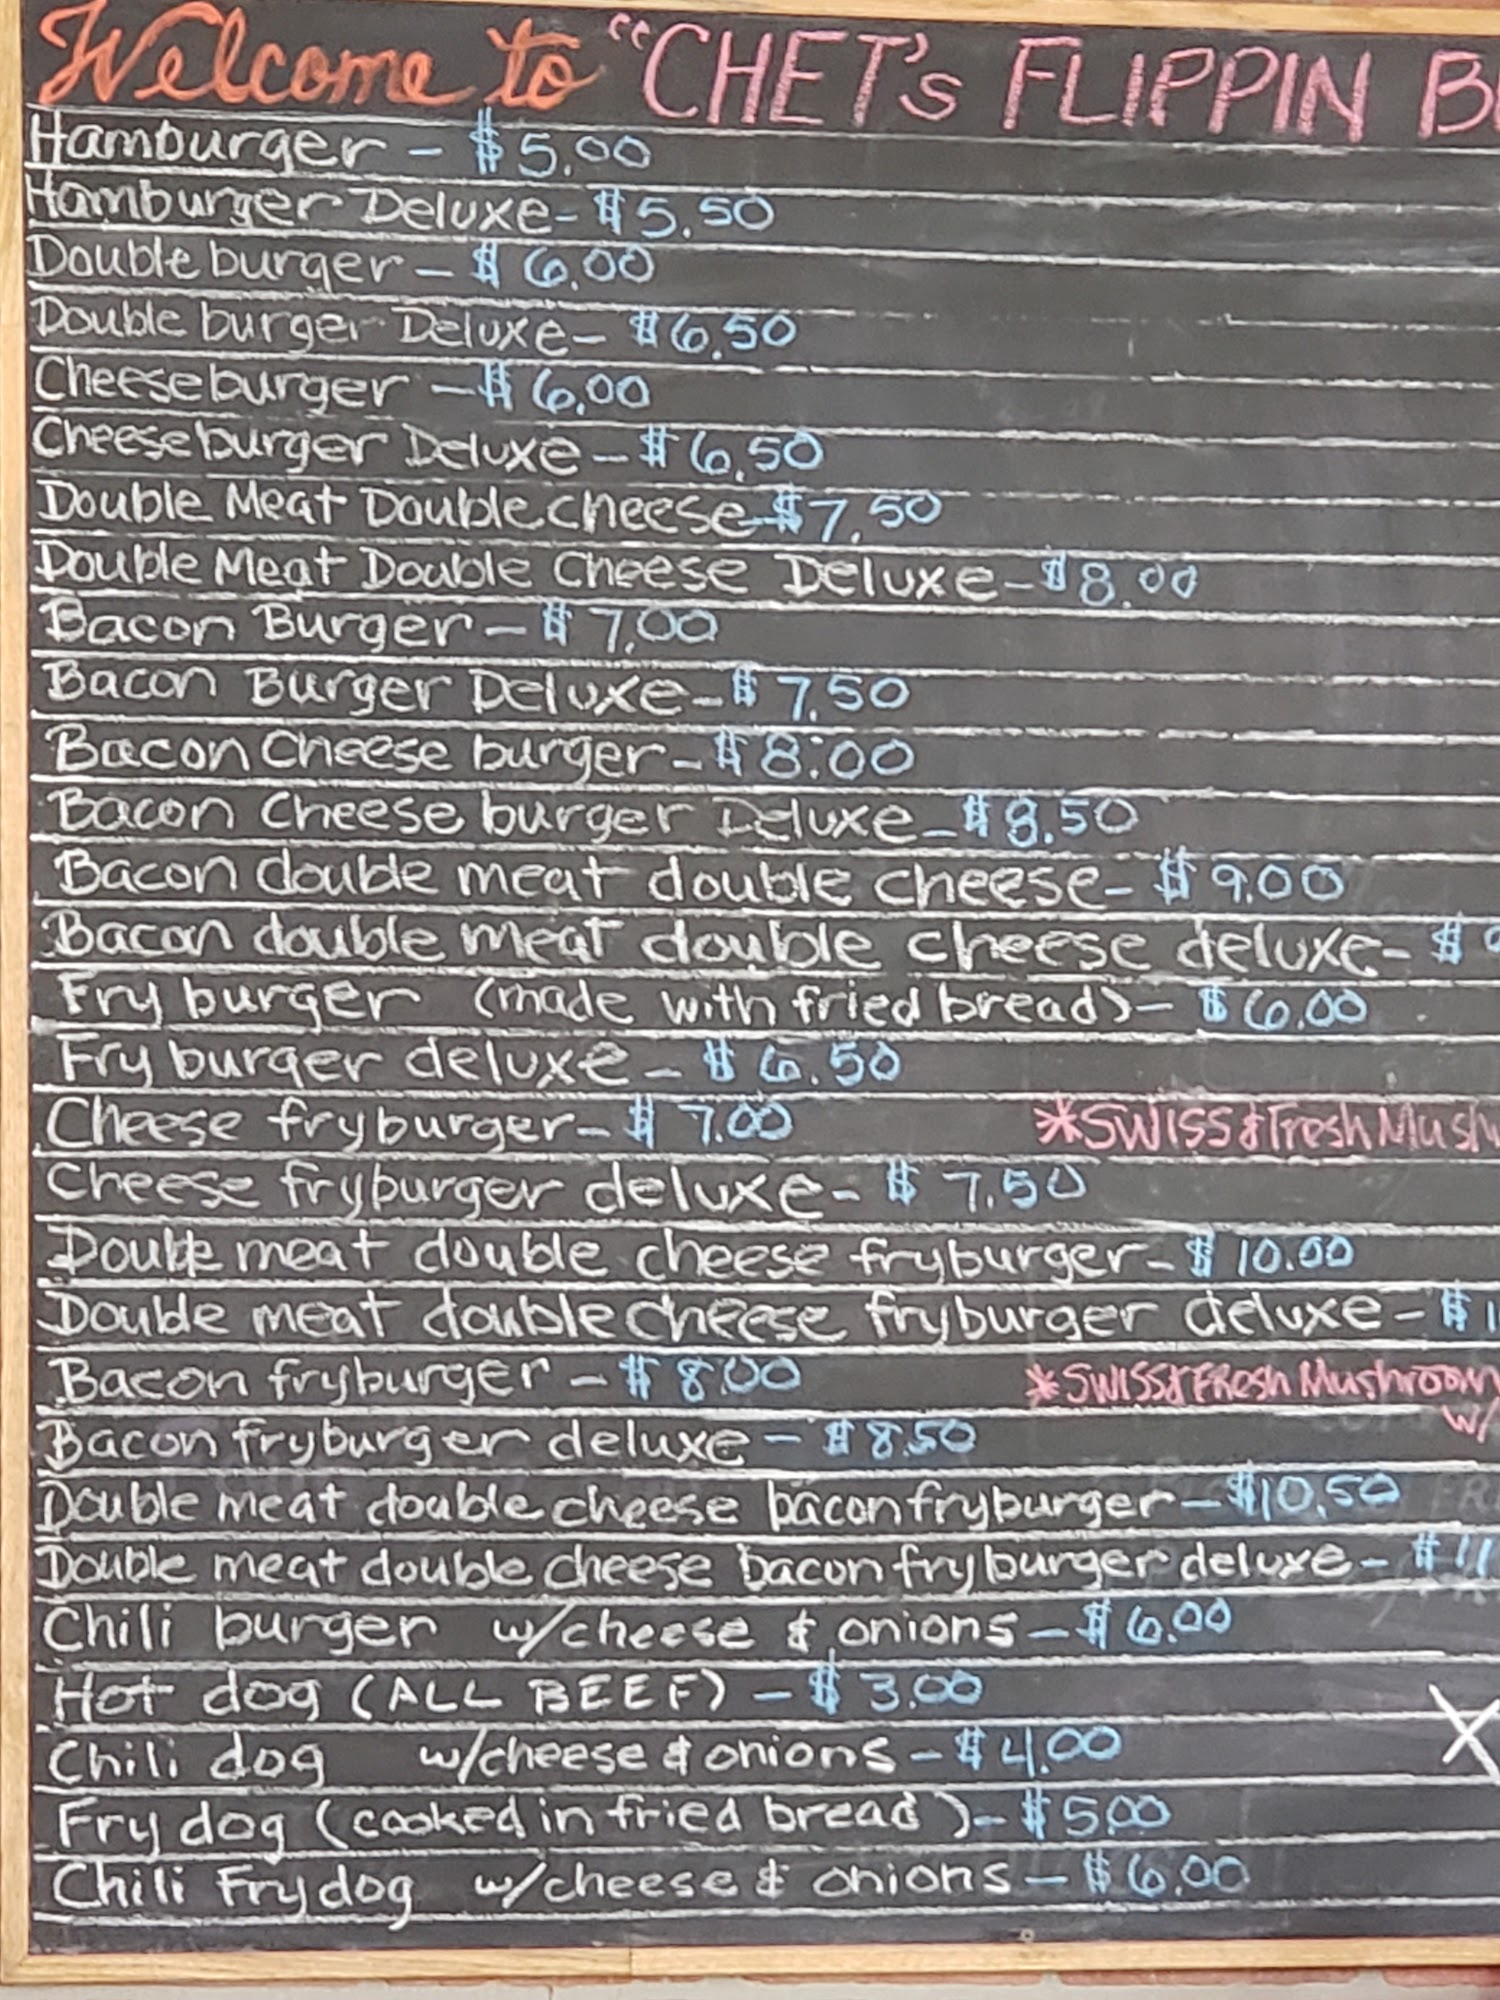 Welcome to "CHET's FLIPPIN
Hamburger - $5.00
Hamburger Deluxe - $5.50
Double burger - $6.00
Double burger Deluxe - $6.50
Cheeseburger - $6.00
Cheeseburger Deluxe - $6.50
Double Meat Double cheese - $7.50
Double Meat Double Cheese Deluxe - $8.00
Bacon Burger - $7.00
Bacon Burger Deluxe - $7.50
Bacon Cheese burger - $8.00
Bacon Cheese burger Deluxe - $8.50
Bacon double meat double cheese - $9.00
Bacon double meat double cheese deluxe - $
Fry burger (made with fried bread) - $6.00
Fry burger deluxe - $6.50
Cheese fryburger - $7.00 *SWISS & Fresh
Cheese fryburger deluxe - $7.50
Double meat double cheese fryburger - $10.00
Double meat double cheese fryburger deluxe - $1
Bacon fryburger - $8.00 *SWISS & FResh Mushroom
w/
Bacon fryburger deluxe - $8.50
Double meat double cheese bacon fryburger - $10.50
Double meat double cheese bacon fryburger deluxe - $11
Chili burger w/cheese & onions - $6.00
Hot dog (ALL BEEF) - $3.00
Chili dog w/cheese & onions - $4.00
Fry dog (cooked in fried bread) - $5.00
Chili Fry dog w/cheese & onions - $6.00